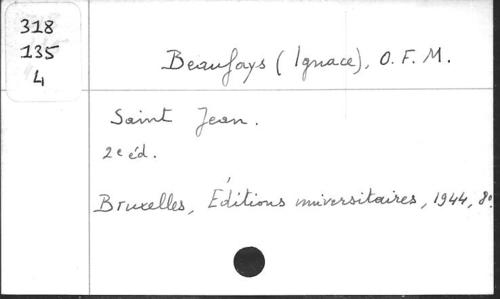 318
135
4
Beaufays (Ignace), O. F. M.
Saint Jean.
2e éd.
Bruxelles, Éditions universitaires, 1944, 8°